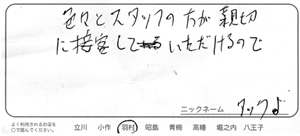 色々とスタッフの方が親切
に接客していただけるので
ニックネーム タックよ
よく利用されるお店を
○で選んでください。 立川 小作 羽村 昭島 青梅 高幡 堀之内 八王子